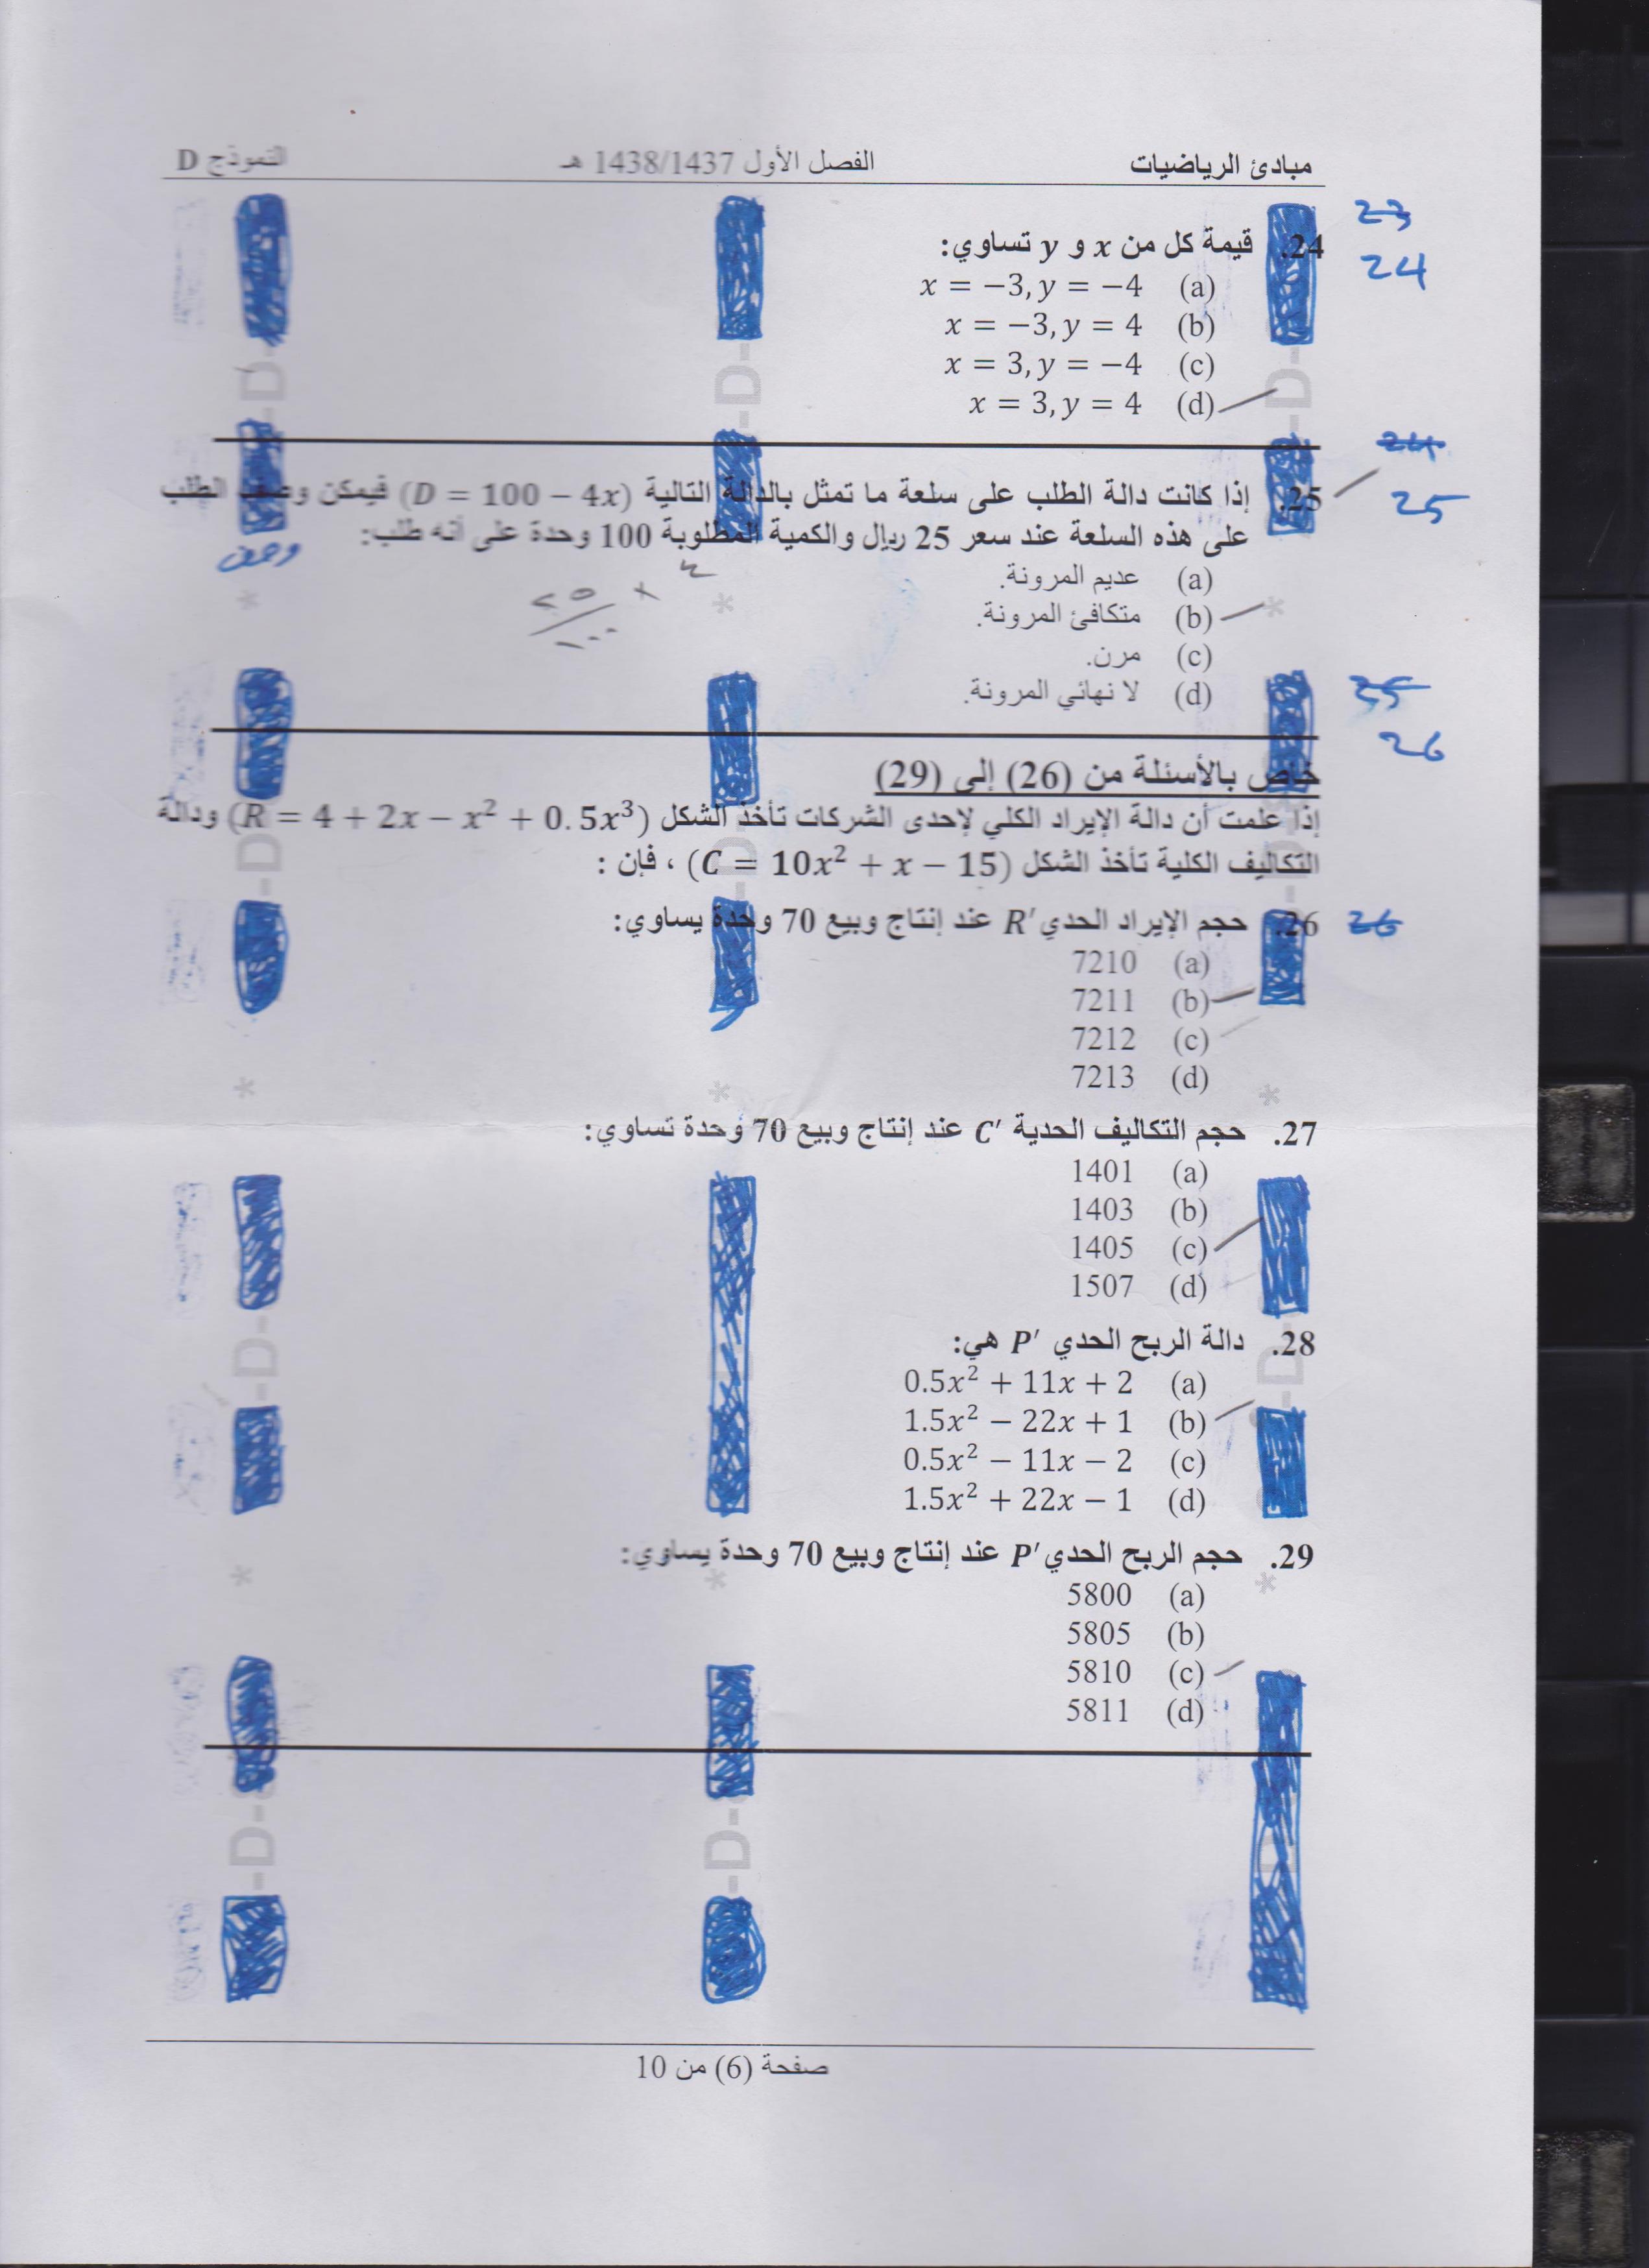 مبادئ الرياضيات الفصل الأول 1438/1437 هـ النموذج D
23
24
24. قيمة كل من x و y تساوي:
(a) x = −3, y = −4
(b) x = −3, y = 4
(c) x = 3, y = −4
(d) x = 3, y = 4
24
25
25. إذا كانت دالة الطلب على سلعة ما تمثل بالدالة التالية (D = 100 − 4x) فيمكن وصف الطلب
على هذه السلعة عند سعر 25 ريال والكمية المطلوبة 100 وحدة على أنه طلب:
وصف
(a) عديم المرونة.
(b) متكافئ المرونة.
(c) مرن.
(d) لا نهائي المرونة.
25
26
خاص بالأسئلة من (26) إلى (29)
إذا علمت أن دالة الإيراد الكلي لإحدى الشركات تأخذ الشكل (R = 4 + 2x − x² + 0.5x³) ودالة
التكاليف الكلية تأخذ الشكل (C = 10x² + x − 15) ، فإن :
26. حجم الإيراد الحدي R′ عند إنتاج وبيع 70 وحدة يساوي:
26
(a) 7210
(b) 7211
(c) 7212
(d) 7213
27. حجم التكاليف الحدية C′ عند إنتاج وبيع 70 وحدة تساوي:
(a) 1401
(b) 1403
(c) 1405
(d) 1507
28. دالة الربح الحدي P′ هي:
(a) 0.5x² + 11x + 2
(b) 1.5x² − 22x + 1
(c) 0.5x² − 11x − 2
(d) 1.5x² + 22x − 1
29. حجم الربح الحدي P′ عند إنتاج وبيع 70 وحدة يساوي:
(a) 5800
(b) 5805
(c) 5810
(d) 5811
صفحة (6) من 10